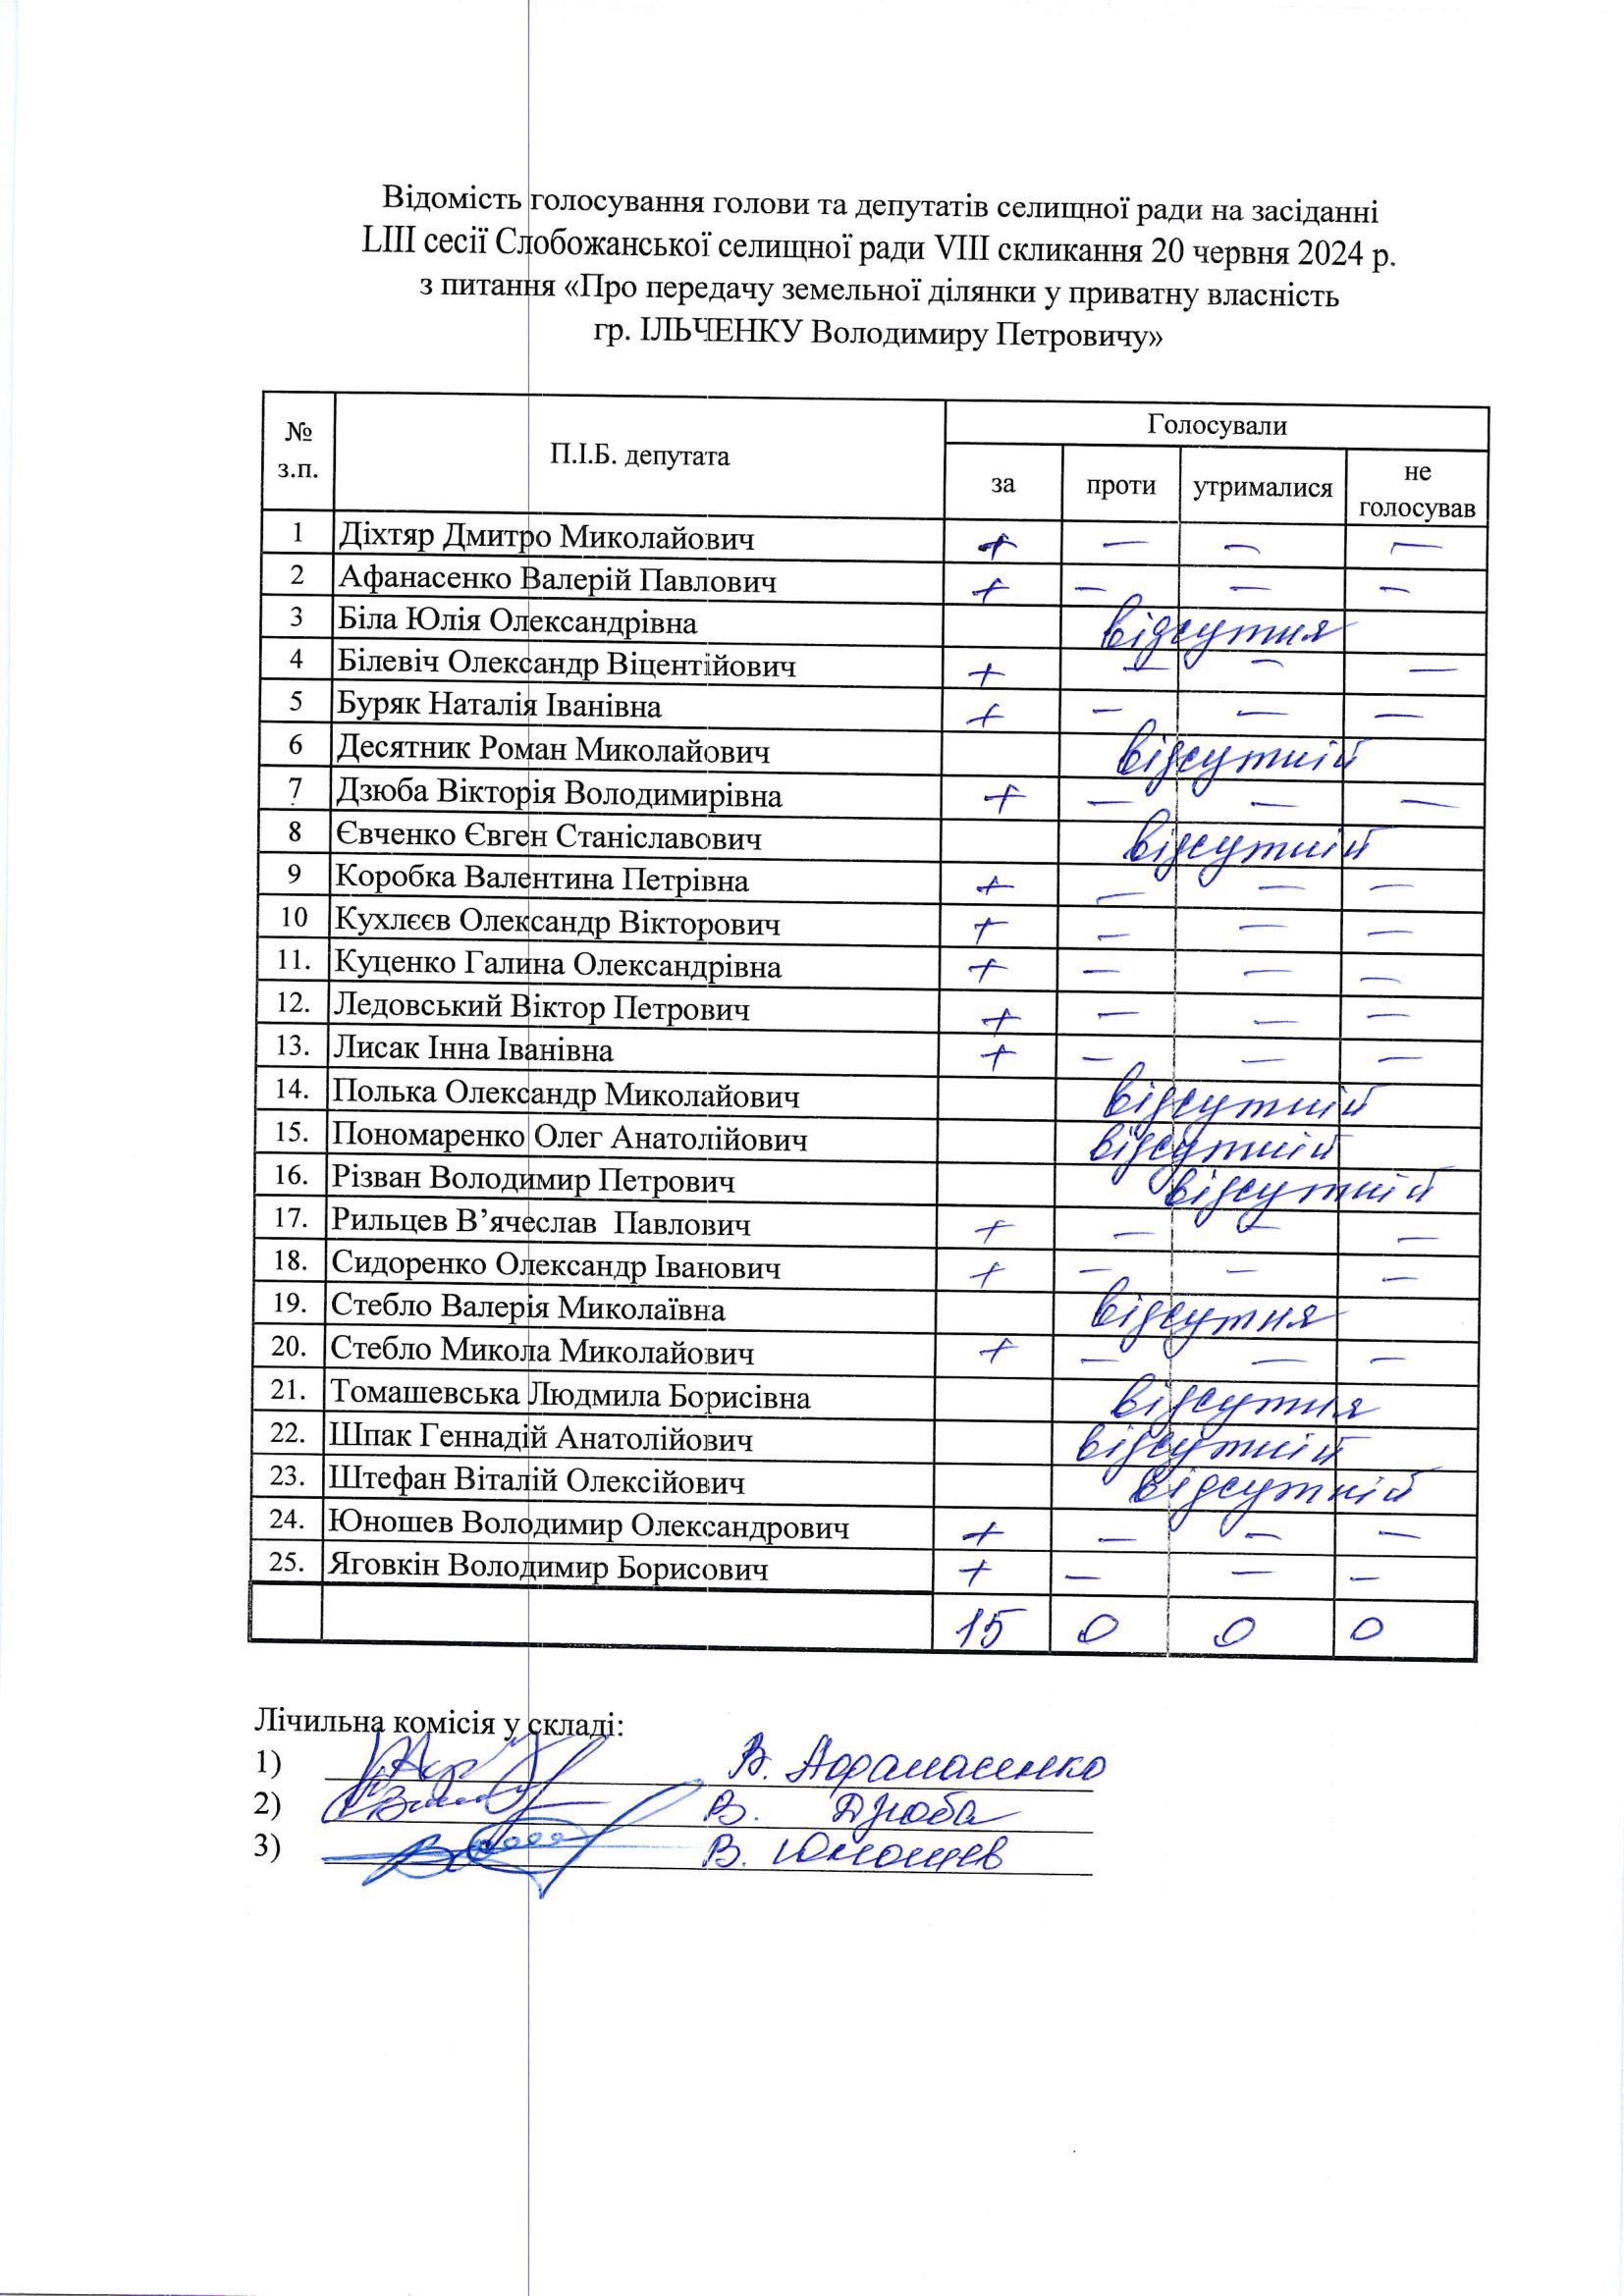 Відомість голосування голови та депутатів селищної ради на засіданні
LIII сесії Слобожанської селищної ради VIII скликання 20 червня 2024 р.
з питання «Про передачу земельної ділянки у приватну власність
гр. ІЛЬЧЕНКУ Володимиру Петровичу»
№ з.п. П.І.Б. депутата Голосували
за проти утрималися не голосував
1 Діхтяр Дмитро Миколайович + — — —
2 Афанасенко Валерій Павлович + — — —
3 Біла Юлія Олександрівна відсутня
4 Білевіч Олександр Віцентійович + — — —
5 Буряк Наталія Іванівна + — — —
6 Десятник Роман Миколайович відсутній
7 Дзюба Вікторія Володимирівна + — — —
8 Євченко Євген Станіславович відсутній
9 Коробка Валентина Петрівна + — — —
10 Кухлєєв Олександр Вікторович + — — —
11. Куценко Галина Олександрівна + — — —
12. Ледовський Віктор Петрович + — — —
13. Лисак Інна Іванівна + — — —
14. Полька Олександр Миколайович відсутній
15. Пономаренко Олег Анатолійович відсутній
16. Різван Володимир Петрович відсутній
17. Рильцев В’ячеслав Павлович + — — —
18. Сидоренко Олександр Іванович + — — —
19. Стебло Валерія Миколаївна відсутня
20. Стебло Микола Миколайович + — — —
21. Томашевська Людмила Борисівна відсутня
22. Шпак Геннадій Анатолійович відсутній
23. Штефан Віталій Олексійович відсутній
24. Юношев Володимир Олександрович + — — —
25. Яговкін Володимир Борисович + — — —
15 0 0 0
Лічильна комісія у складі:
1) В. Афанасенко
2) В. Дзюба
3) В. Юношев